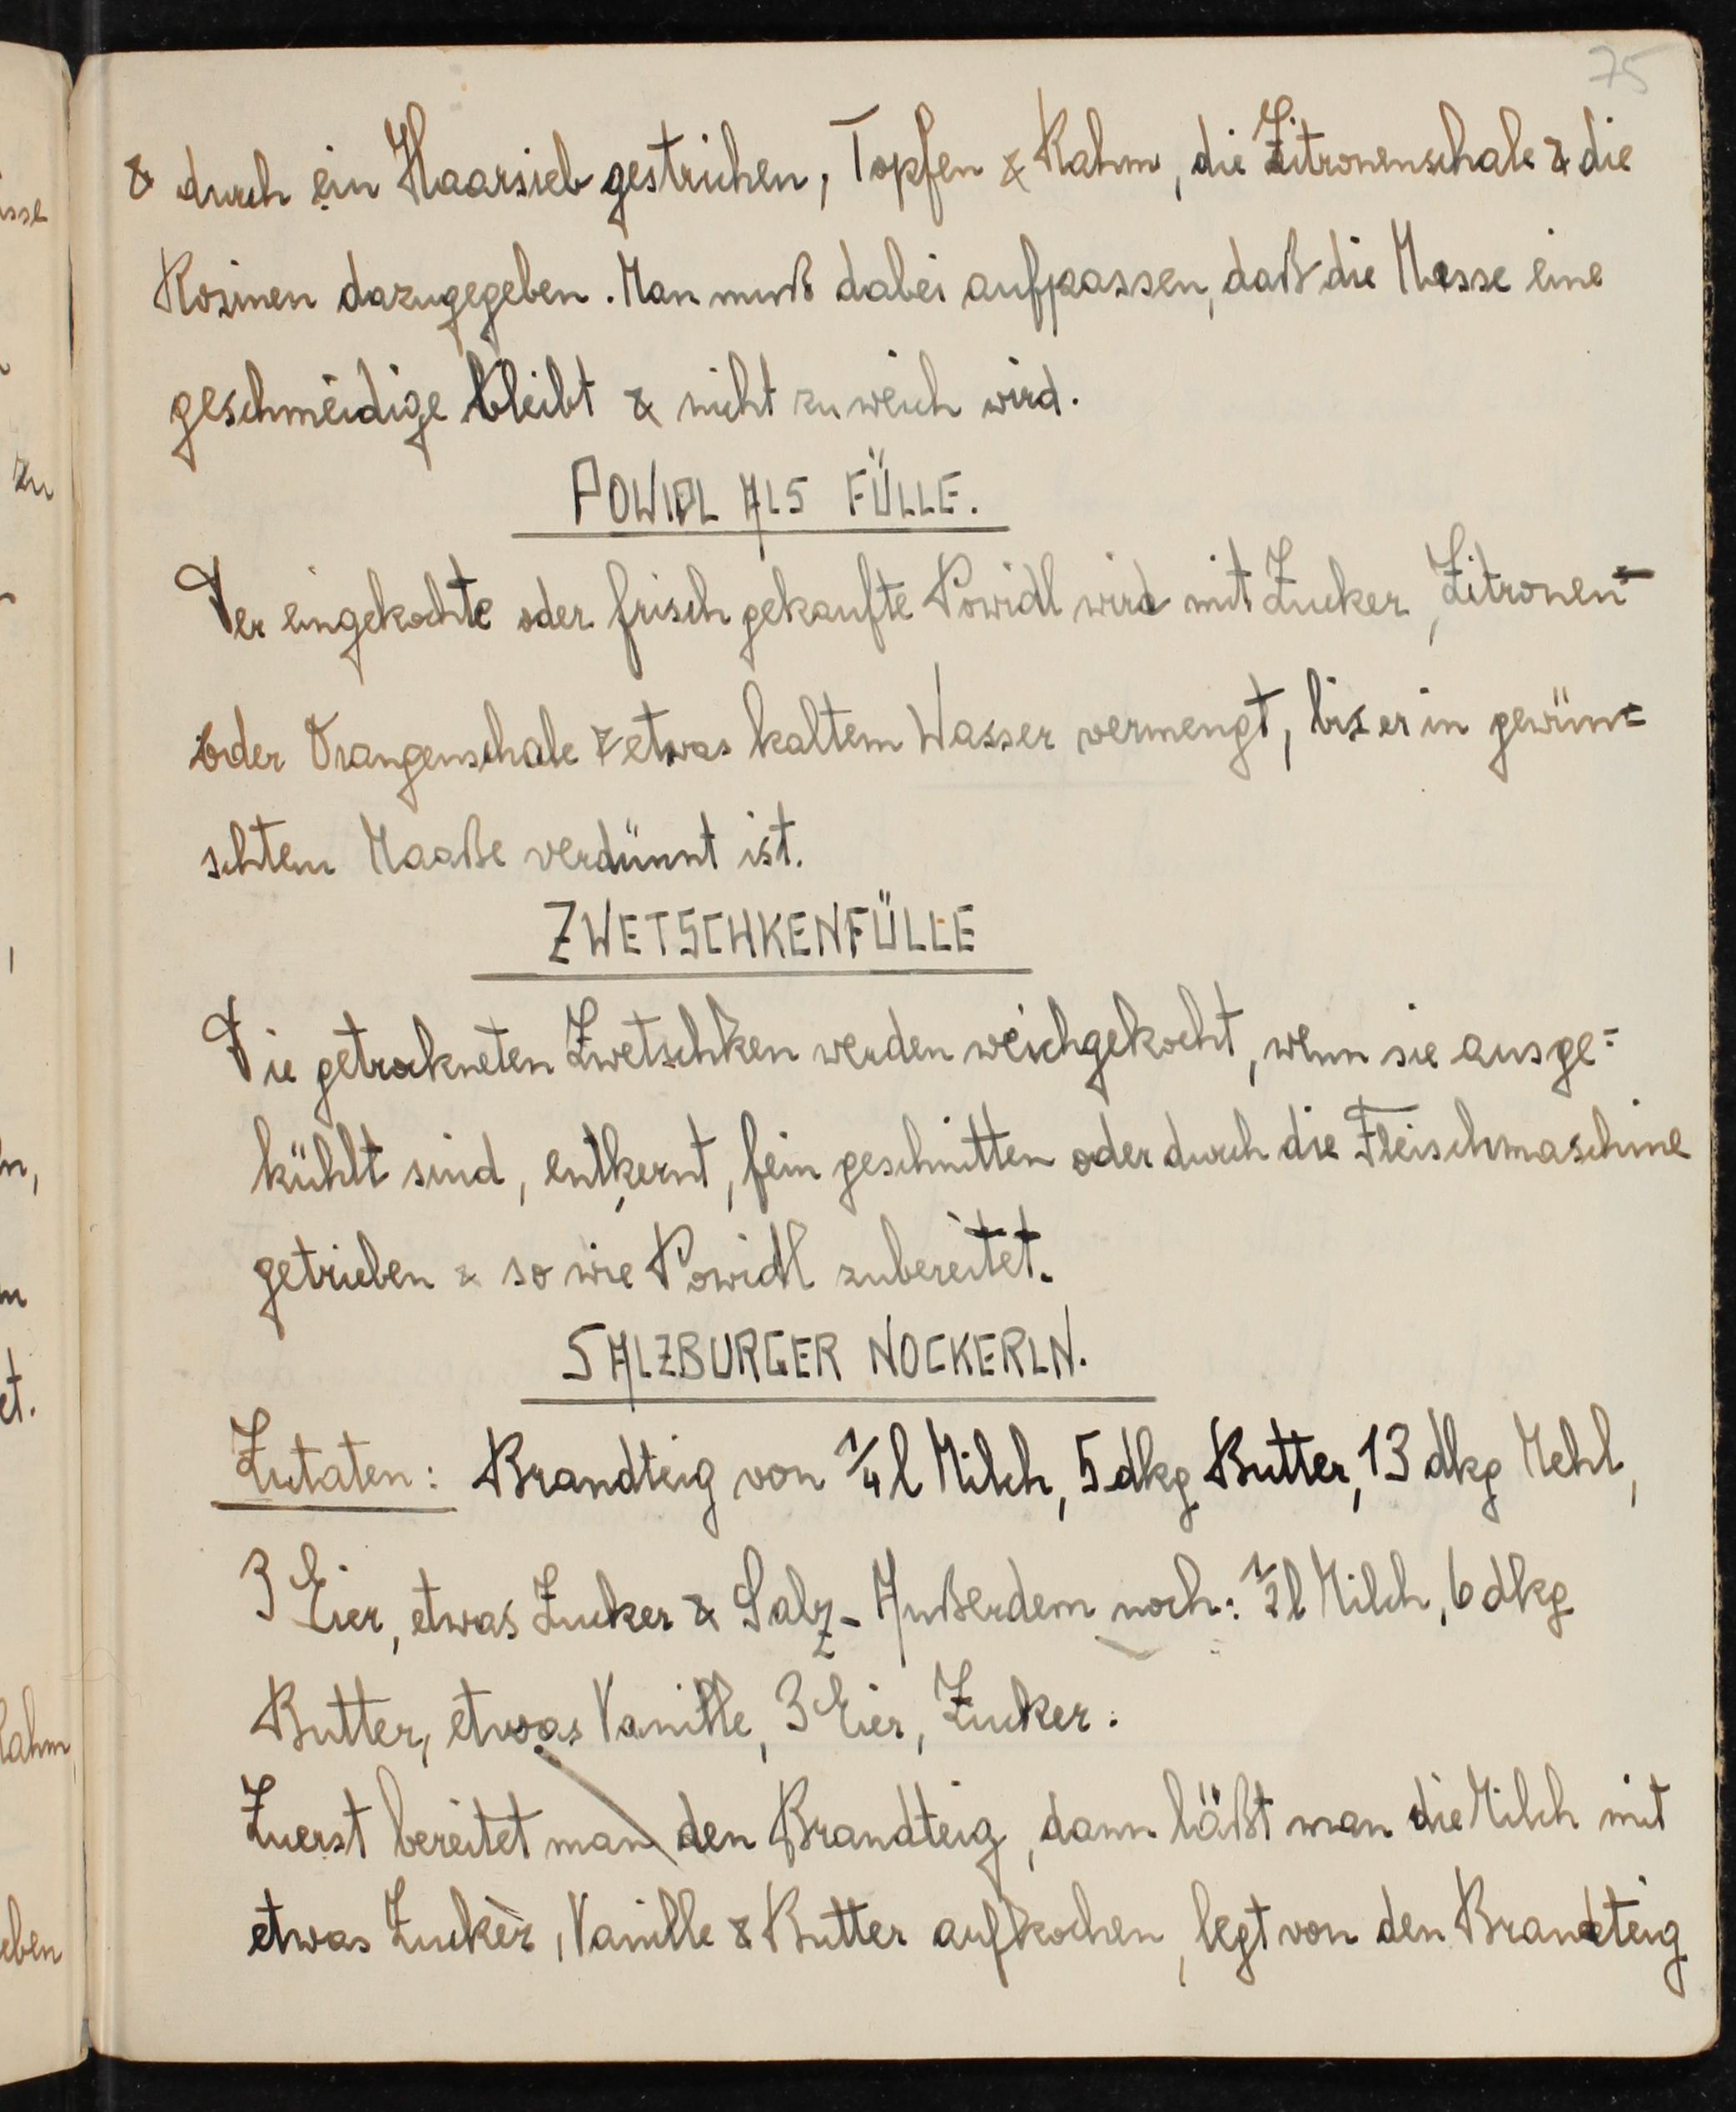 75
& durch ein Haarsieb gestrichen, Topfen & Rahm, die Zitronenschale & die
Rosinen dazugegeben. Man muß dabei aufpassen, daß die Masse eine
geschmeidige bleibt & nicht zu weich wird.
POWIDL ALS FÜLLE.
Der eingekochte oder frisch gekaufte Powidl wird mit Zucker, Zitronen-
oder Orangenschale & etwas kaltem Wasser vermengt, bis er in gewün=
schtem Maaße verdünnt ist.
ZWETSCHKENFÜLLE
Die getrockneten Zwetschken werden weichgekocht, wenn sie ausge=
kühlt sind, entkernt, fein geschnitten oder durch die Fleischmaschine
getrieben & so wie Powidl zubereitet.
SALZBURGER NOCKERLN.
Zutaten: Brandteig von 1/4 l Milch, 5 dkg Butter, 13 dkg Mehl,
3 Eier, etwas Zucker & Salz - Außerdem noch: 1/2 l Milch, 6 dkg
Butter, etwas Vanille, 3 Eier, Zucker.
Zuerst bereitet man den Brandteig, dann läßt man die Milch mit
etwas Zucker, Vanille & Butter aufkochen, legt von den Brandteig